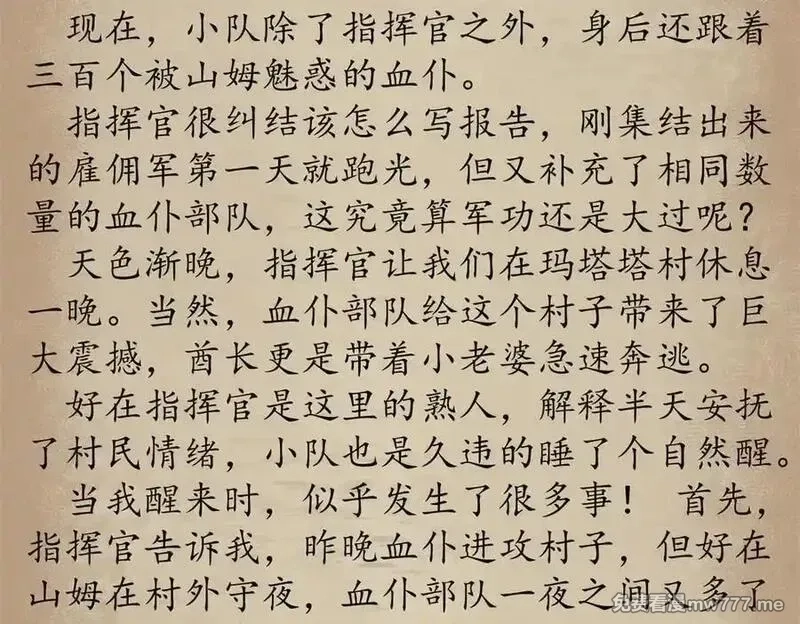 现在，小队除了指挥官之外，身后还跟着
三百个被山姆魅惑的血仆。
指挥官很纠结该怎么写报告，刚集结出来
的雇佣军第一天就跑光，但又补充了相同数
量的血仆部队，这究竟算军功还是大过呢？
天色渐晚，指挥官让我们在玛塔塔村休息
一晚。当然，血仆部队给这个村子带来了巨
大震撼，酋长更是带着小老婆急速奔逃。
好在指挥官是这里的熟人，解释半天安抚
了村民情绪，小队也是久违的睡了个自然醒。
当我醒来时，似乎发生了很多事！ 首先，
指挥官告诉我，昨晚血仆进攻村子，但好在
山姆在村外守夜，血仆部队一夜之间又多了
免费看漫mw777.me